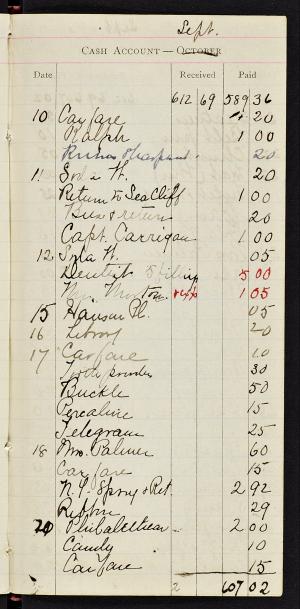 Sept.
CASH ACCOUNT — OCTOBER
Date Received Paid
612 69 589 36
10 Carfare 20
Ralph 1 00
20
11 Soda W. 20
Return to Sea Cliff 1 00
Bus & return 20
Capt. Carrigan 1 00
12 Soda W. 05
Dentist 5 00
Morton 1 05
15 Hanson Pl. 05
16 Library 20
17 Carfare 10
Tooth powder 30
Buckle 50
Percaline 15
Telegram 25
18 Mrs. Palmer 60
Carfare 15
N.Y. & Ret. 2 92
Ribbon 29
20 2 00
Candy 10
Carfare 15
607 02